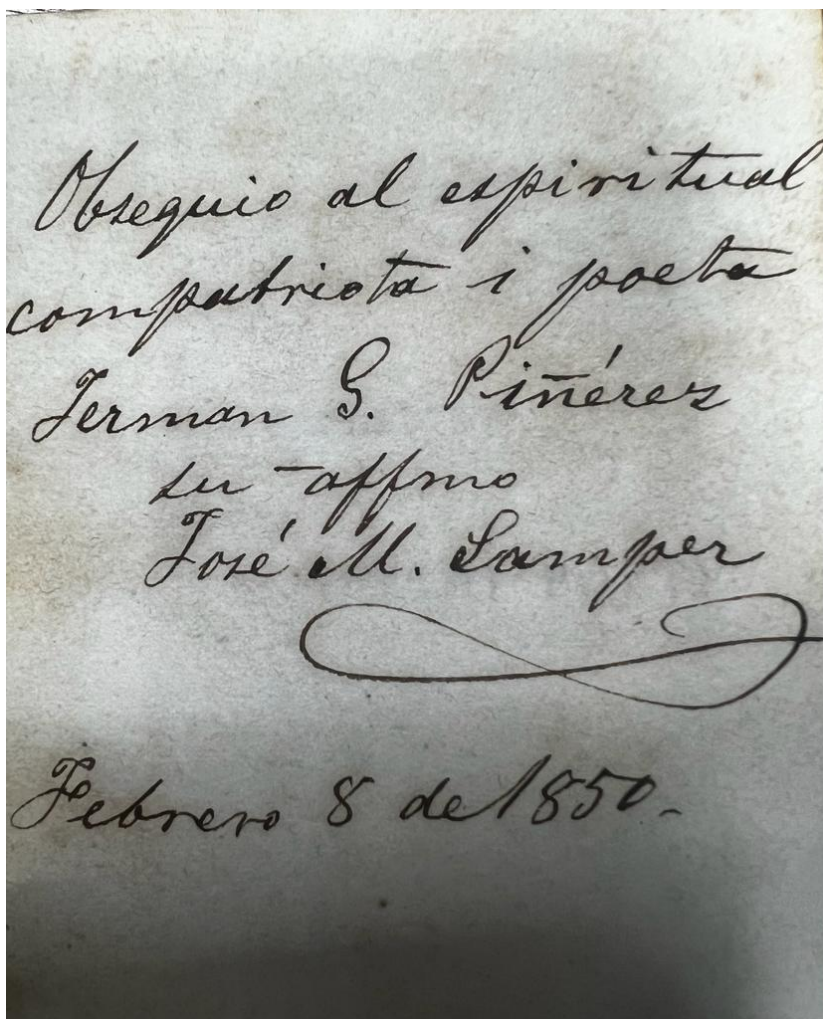 Obsequio al espiritual
compatriota i poeta
German G. Piñérez
su affmo
José M. Samper
Febrero 8 de 1850.